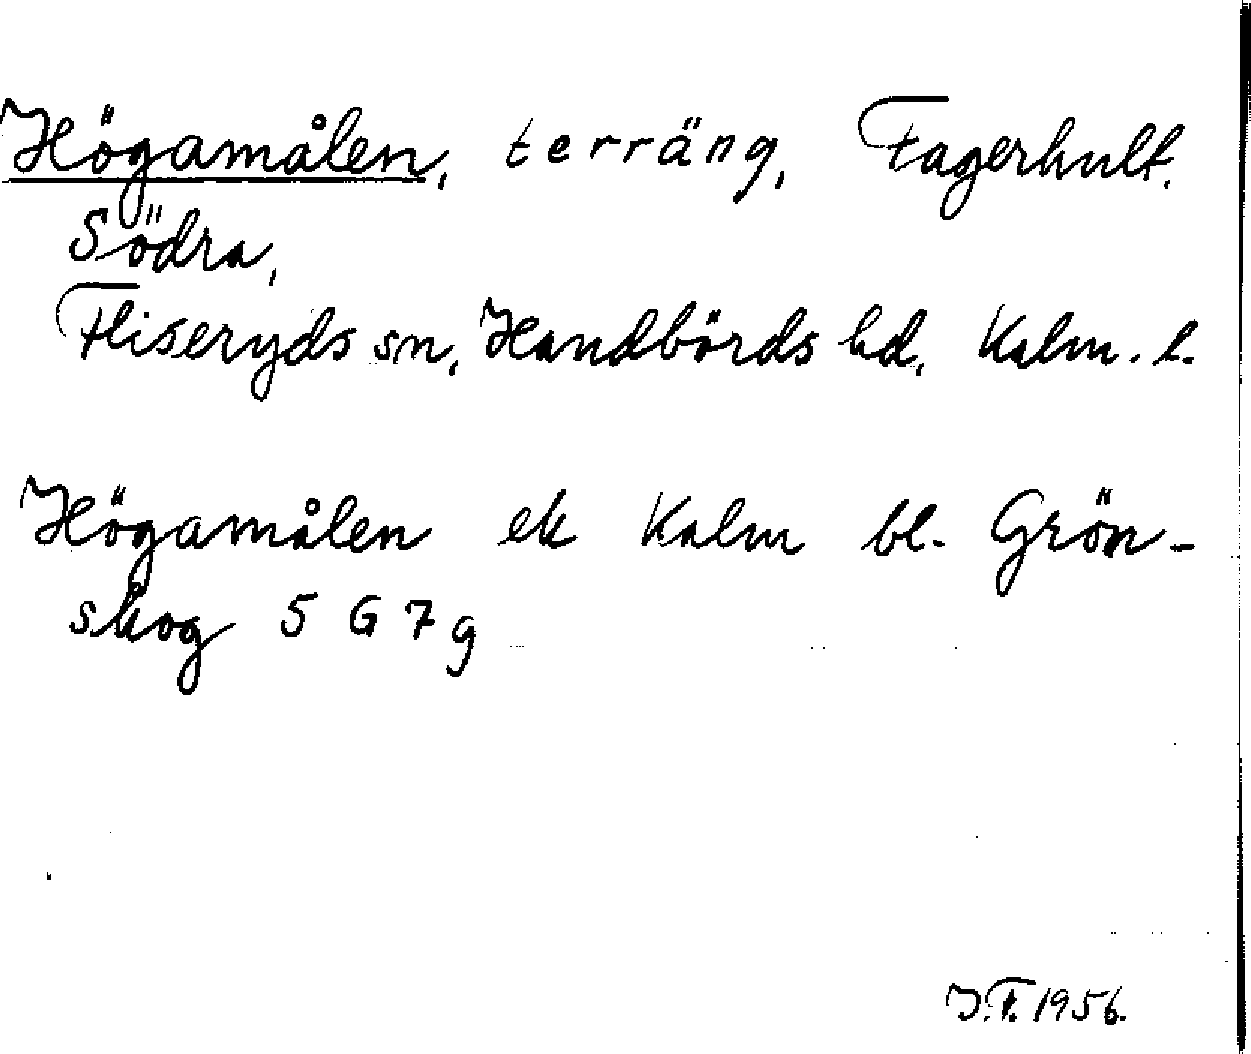 Högamålen, terräng, Fagerhult,
Södra,
Fliseryds sn, Handbörds hd, Kalm. l.
Högamålen ek Kalm bl. Grön-
skog 5 G 7 g
J.F. 1956.